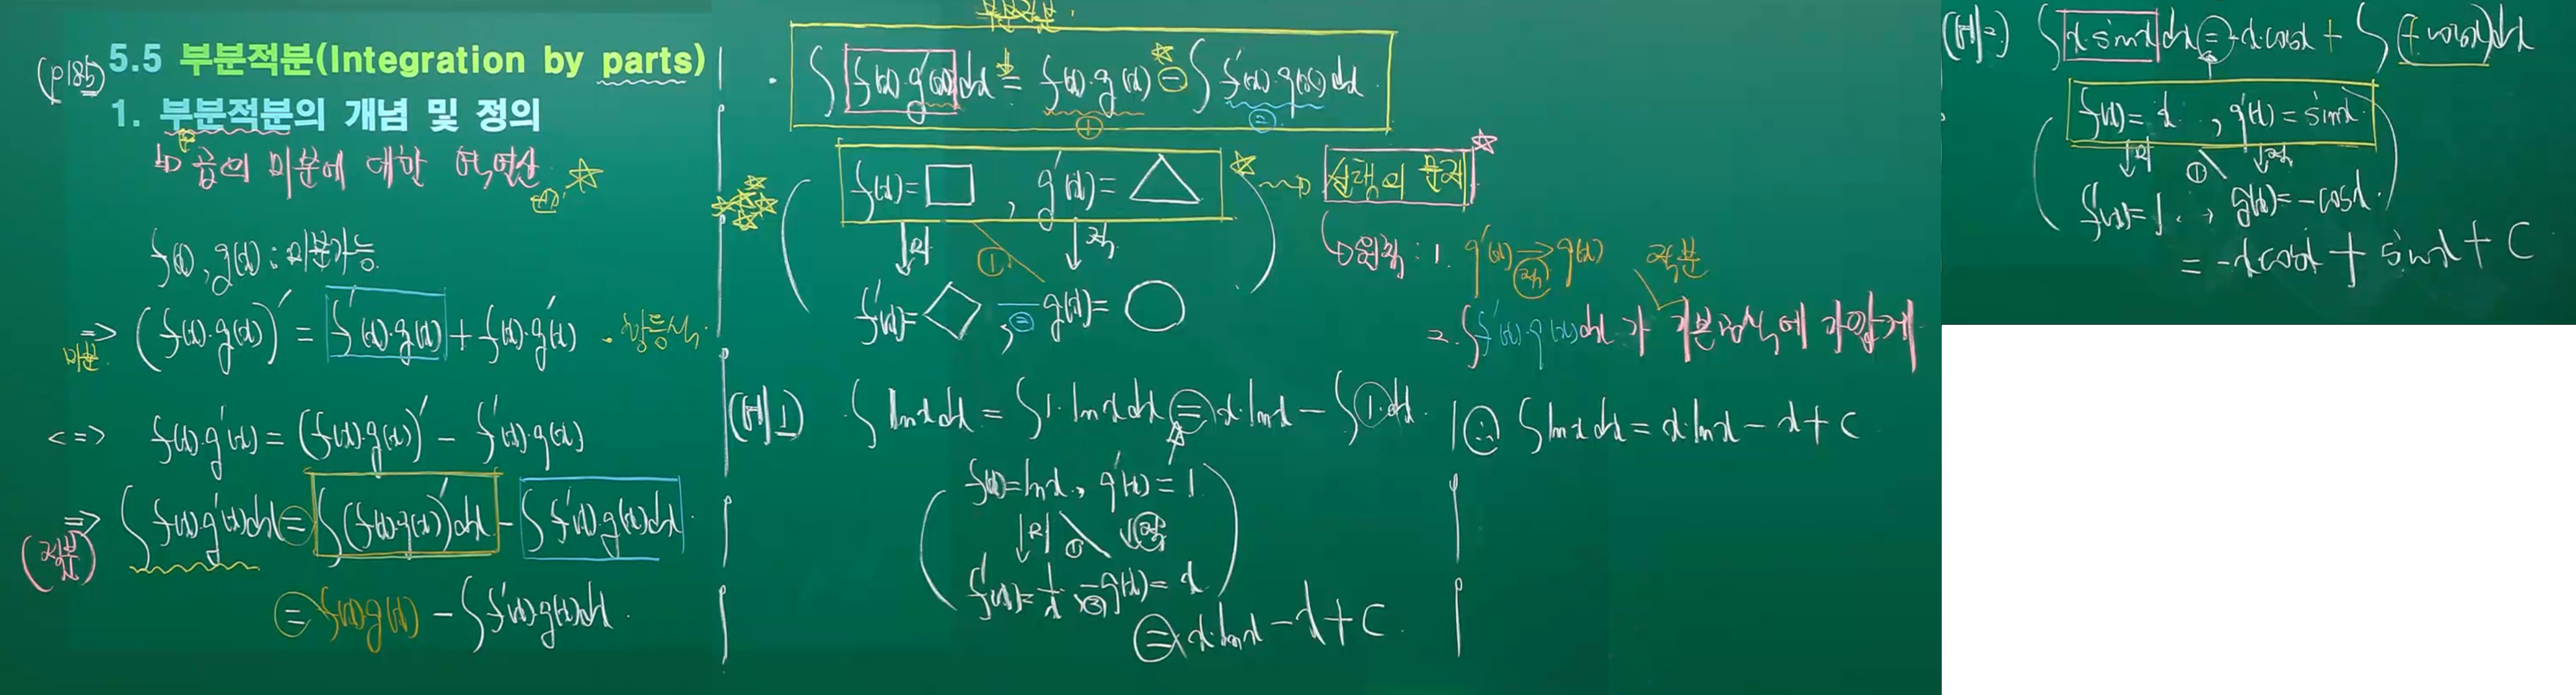 (p185) 5.5 부분적분(Integration by parts)
1. 부분적분의 개념 및 정의
곱의 미분에 대한 역연산
f(x), g(x) : 미분가능
미분 => (f(x)·g(x))' = f'(x)·g(x) + f(x)·g'(x) . 항등식.
<=> f(x)·g'(x) = (f(x)·g(x))' - f'(x)·g(x)
(적분) => ∫f(x)·g'(x)dx = ∫(f(x)·g(x))'dx - ∫f'(x)·g(x)dx.
= f(x)g(x) - ∫f'(x)·g(x)dx.
· ∫f(x)·g'(x)dx = f(x)·g(x) - ∫f'(x)·g(x)dx
① ②
f(x)=□ , g'(x)=△
↓미 ① ↓적
f'(x)=◇ , ② g(x)=○
선택의 문제
원칙 : 1. g'(x) → g(x)
적
적분
2. ∫f'(x)·g(x)dx 가 기본공식에 가깝게
(예1) ∫lnx dx = ∫1·lnx dx = x·lnx - ∫1·dx.
f(x)=lnx, g'(x)=1
↓미 ① ↓적
f'(x)=1/x, ② g(x)=x
= x·lnx - x + C
∴ ∫lnx dx = x·lnx - x + C
(예2) ∫x·sinx dx = -x·cosx + ∫(+cosx)dx
f(x)=x , g'(x)=sinx
↓미 ① ↓적
f'(x)=1. , g(x)=-cosx.
= -x·cosx + sinx + C